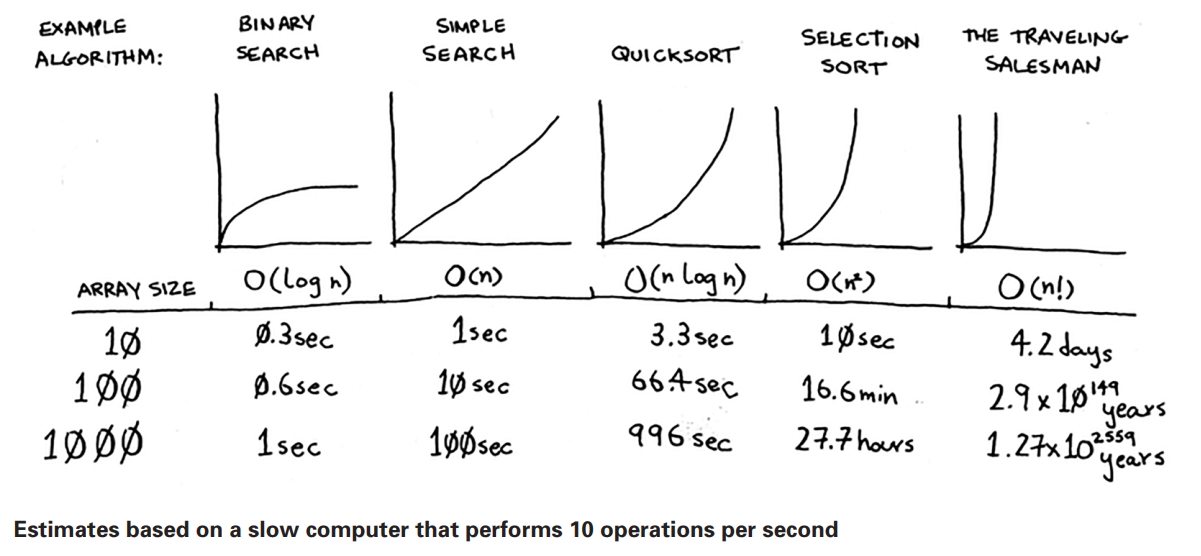 EXAMPLE ALGORITHM:
BINARY SEARCH
SIMPLE SEARCH
QUICKSORT
SELECTION SORT
THE TRAVELING SALESMAN
ARRAY SIZE O(log n) O(n) O(n log n) O(n²) O(n!)
10 0.3sec 1sec 3.3sec 10sec 4.2days
100 0.6sec 10sec 66.4sec 16.6min 2.9x10¹⁴⁹ years
1000 1sec 100sec 996sec 27.7hours 1.27x10²⁵⁵⁹ years
Estimates based on a slow computer that performs 10 operations per second